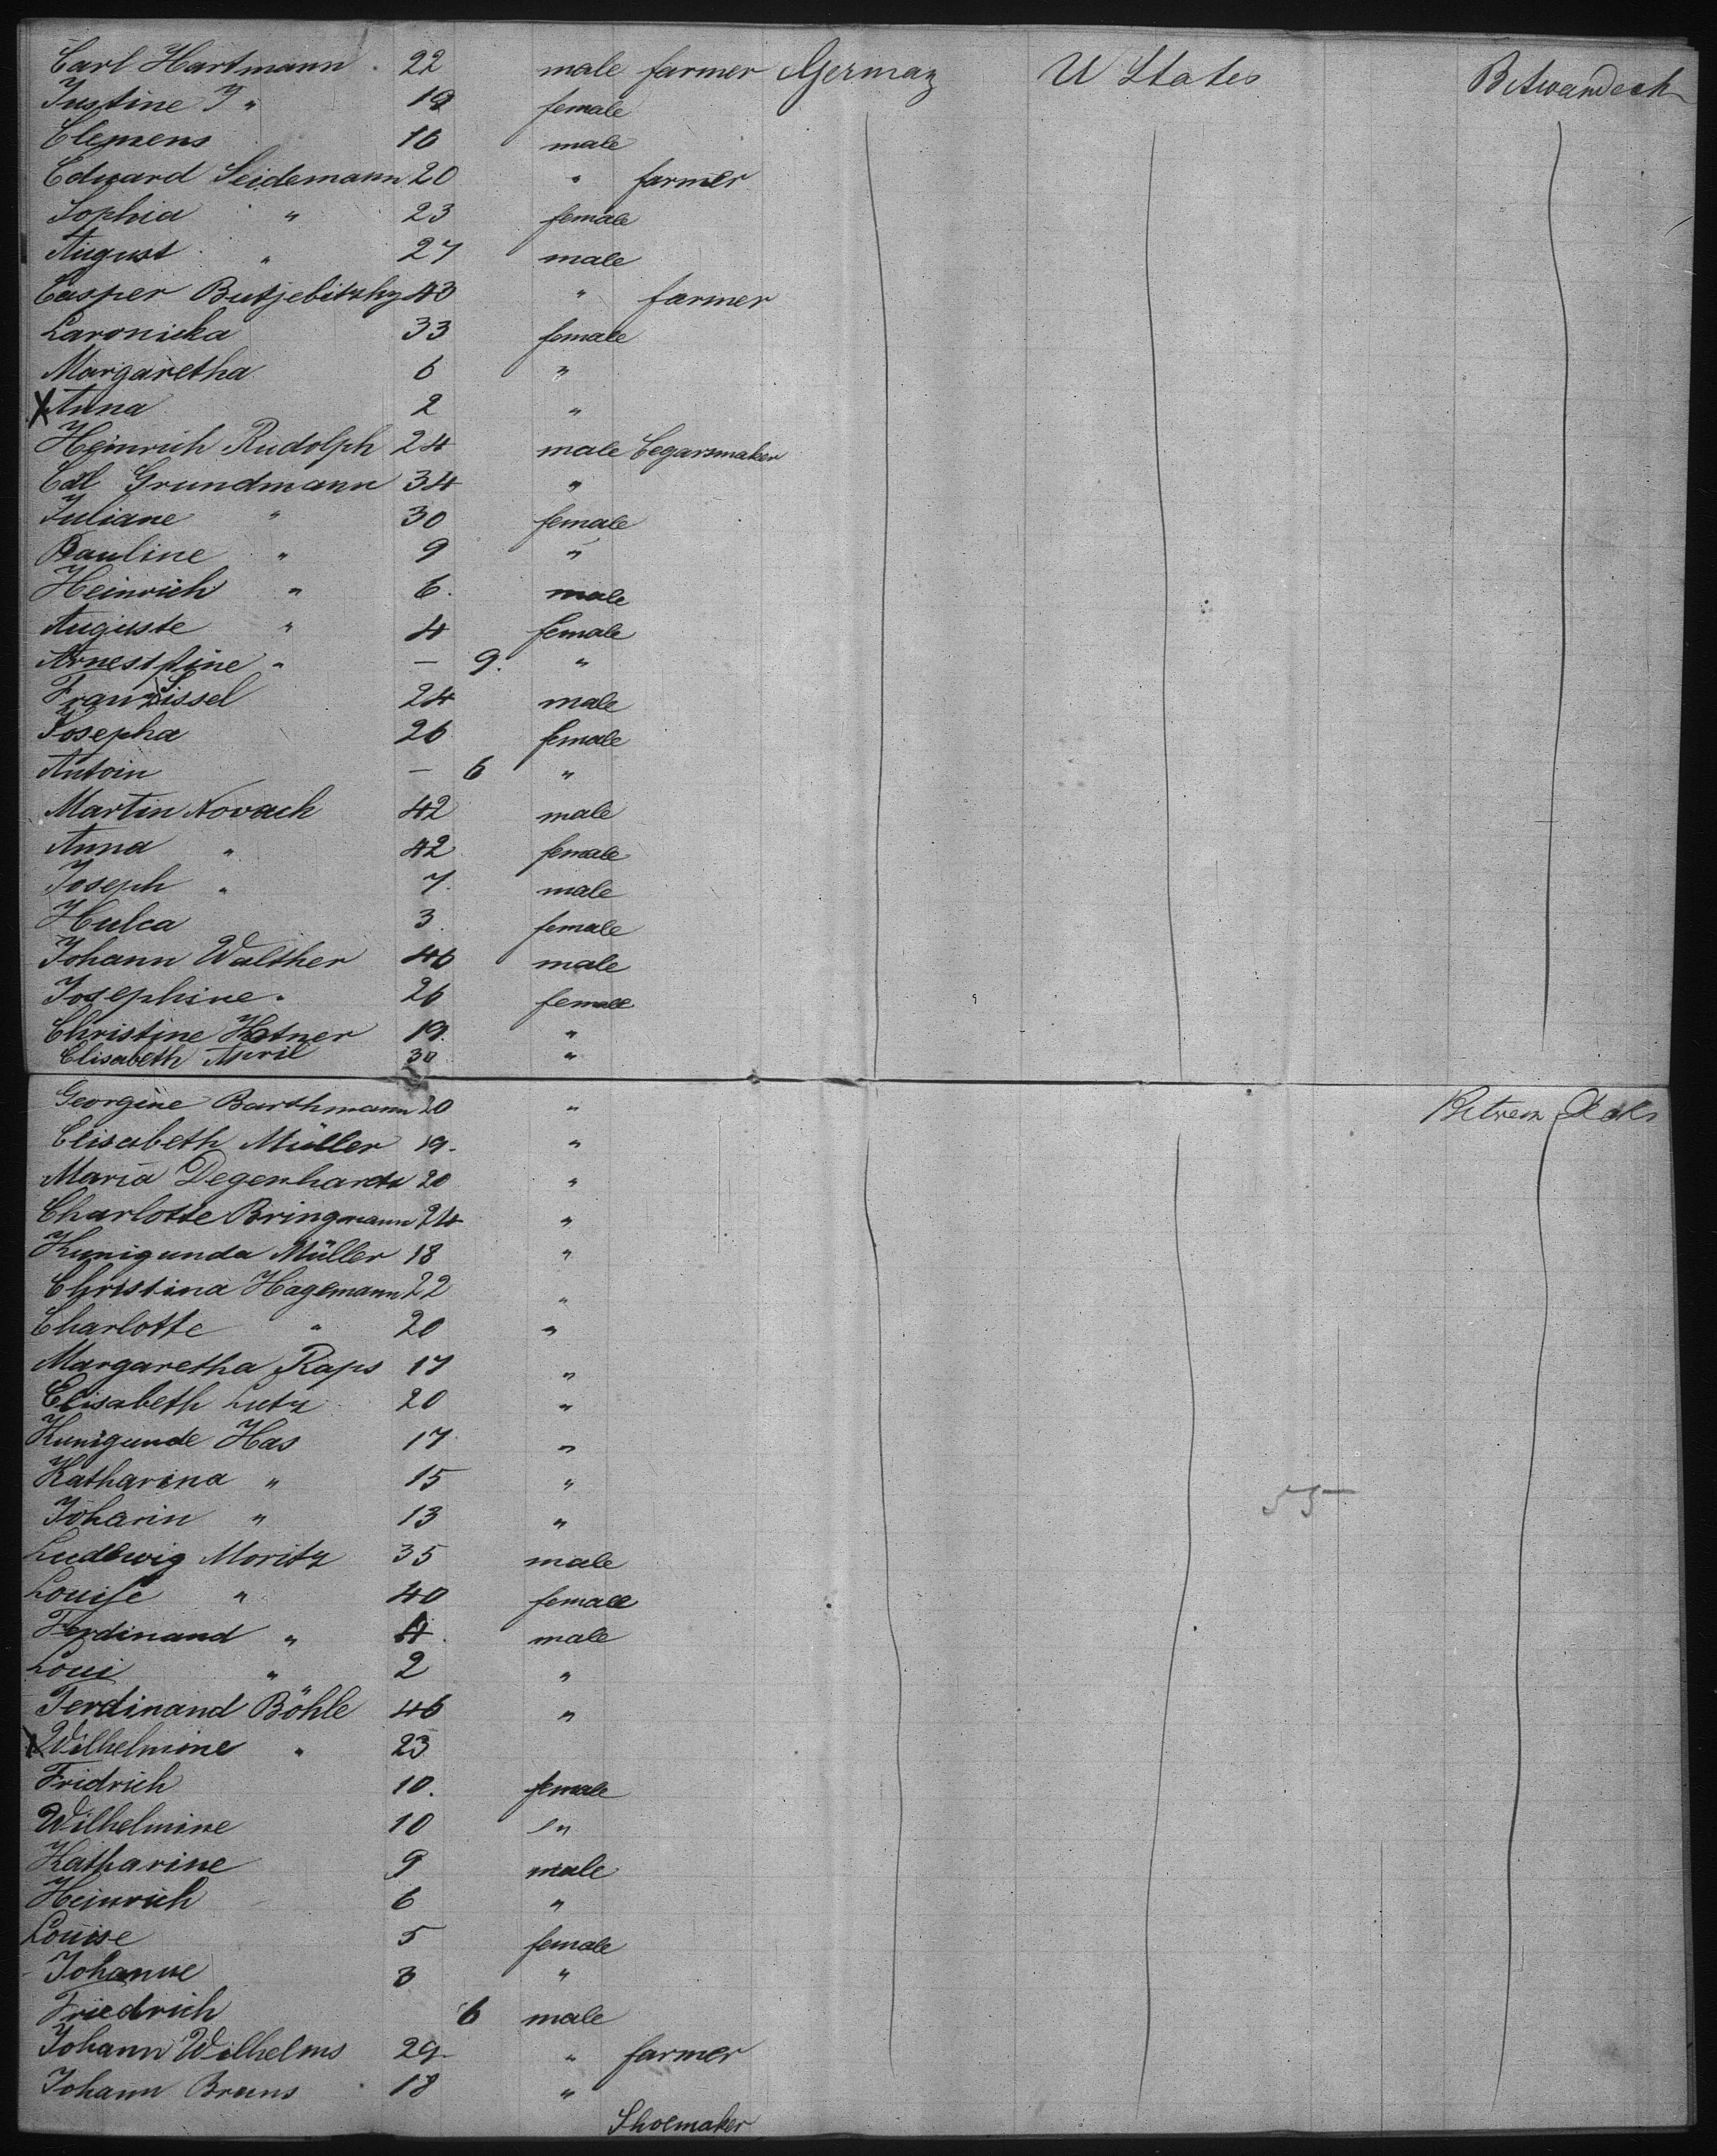 Carl Hartmann 22 male farmer Germany U States Betwendeck
Justine J " 19 female
Clemens 16 male
Eduard Seidemann 20 " farmer
Sophia " 23 female
August " 27 male
Casper Butjebitzky 43 " farmer
Laronicka 33 female
Margaretha 6 "
X Anna 2 "
Heinrich Rudolph 24 male Cegarsmaker
Edl Grundmann 34 "
Juliane " 30 female
Pauline " 9 "
Heinrich " 6. male
Auguste " 4 female
Arnestine " — 9. "
Franz Sissel 24 male
Josepha 26 female
Antoin — 6 "
Martin Novack 42 male
Anna " 42 female
Joseph " 7. male
Hulca 3. female
Johann Walther 46 male
Josephine " 26 female
Christine 19. "
Elisabeth April 30 "
Georgine Barthmann 20 "
Elisabeth Müller 19. "
Maria Degenhardt 20 "
Charlotte Bringmann 24 "
Kunigunda Müller 18 "
Christina Hagemann 22 "
Charlotte " 20 "
Margaretha Raps 17 "
Elisabeth Lutz 20 "
Kunigunde Has 17 "
Katharina " 15 "
Joharin " 13 "
55
Ludewig Moritz 35 male
Louise " 40 female
Ferdinand " 4. male
Loui " 2 "
Ferdinand Böhle 46 "
X Wilhelmine " 23
Fridrich 10. female
Wilhelmine 10 "
Katharine 9 male
Heinrich 6 "
Louise 5 female
Johanne 3 "
Friedrich 6 male
Johann Wilhelms 29. " farmer
Johann Bruns 18 "
Shoemaker